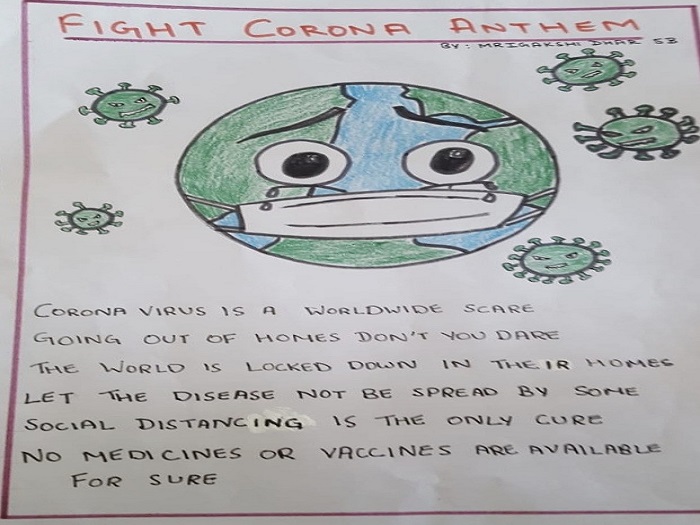 FIGHT CORONA ANTHEM
BY: MRIGAKSHI DHAR 5B
CORONA VIRUS IS A WORLDWIDE SCARE
GOING OUT OF HOMES DON'T YOU DARE
THE WORLD IS LOCKED DOWN IN THEIR HOMES
LET THE DISEASE NOT BE SPREAD BY SOME
SOCIAL DISTANCING IS THE ONLY CURE
NO MEDICINES OR VACCINES ARE AVAILABLE
FOR SURE